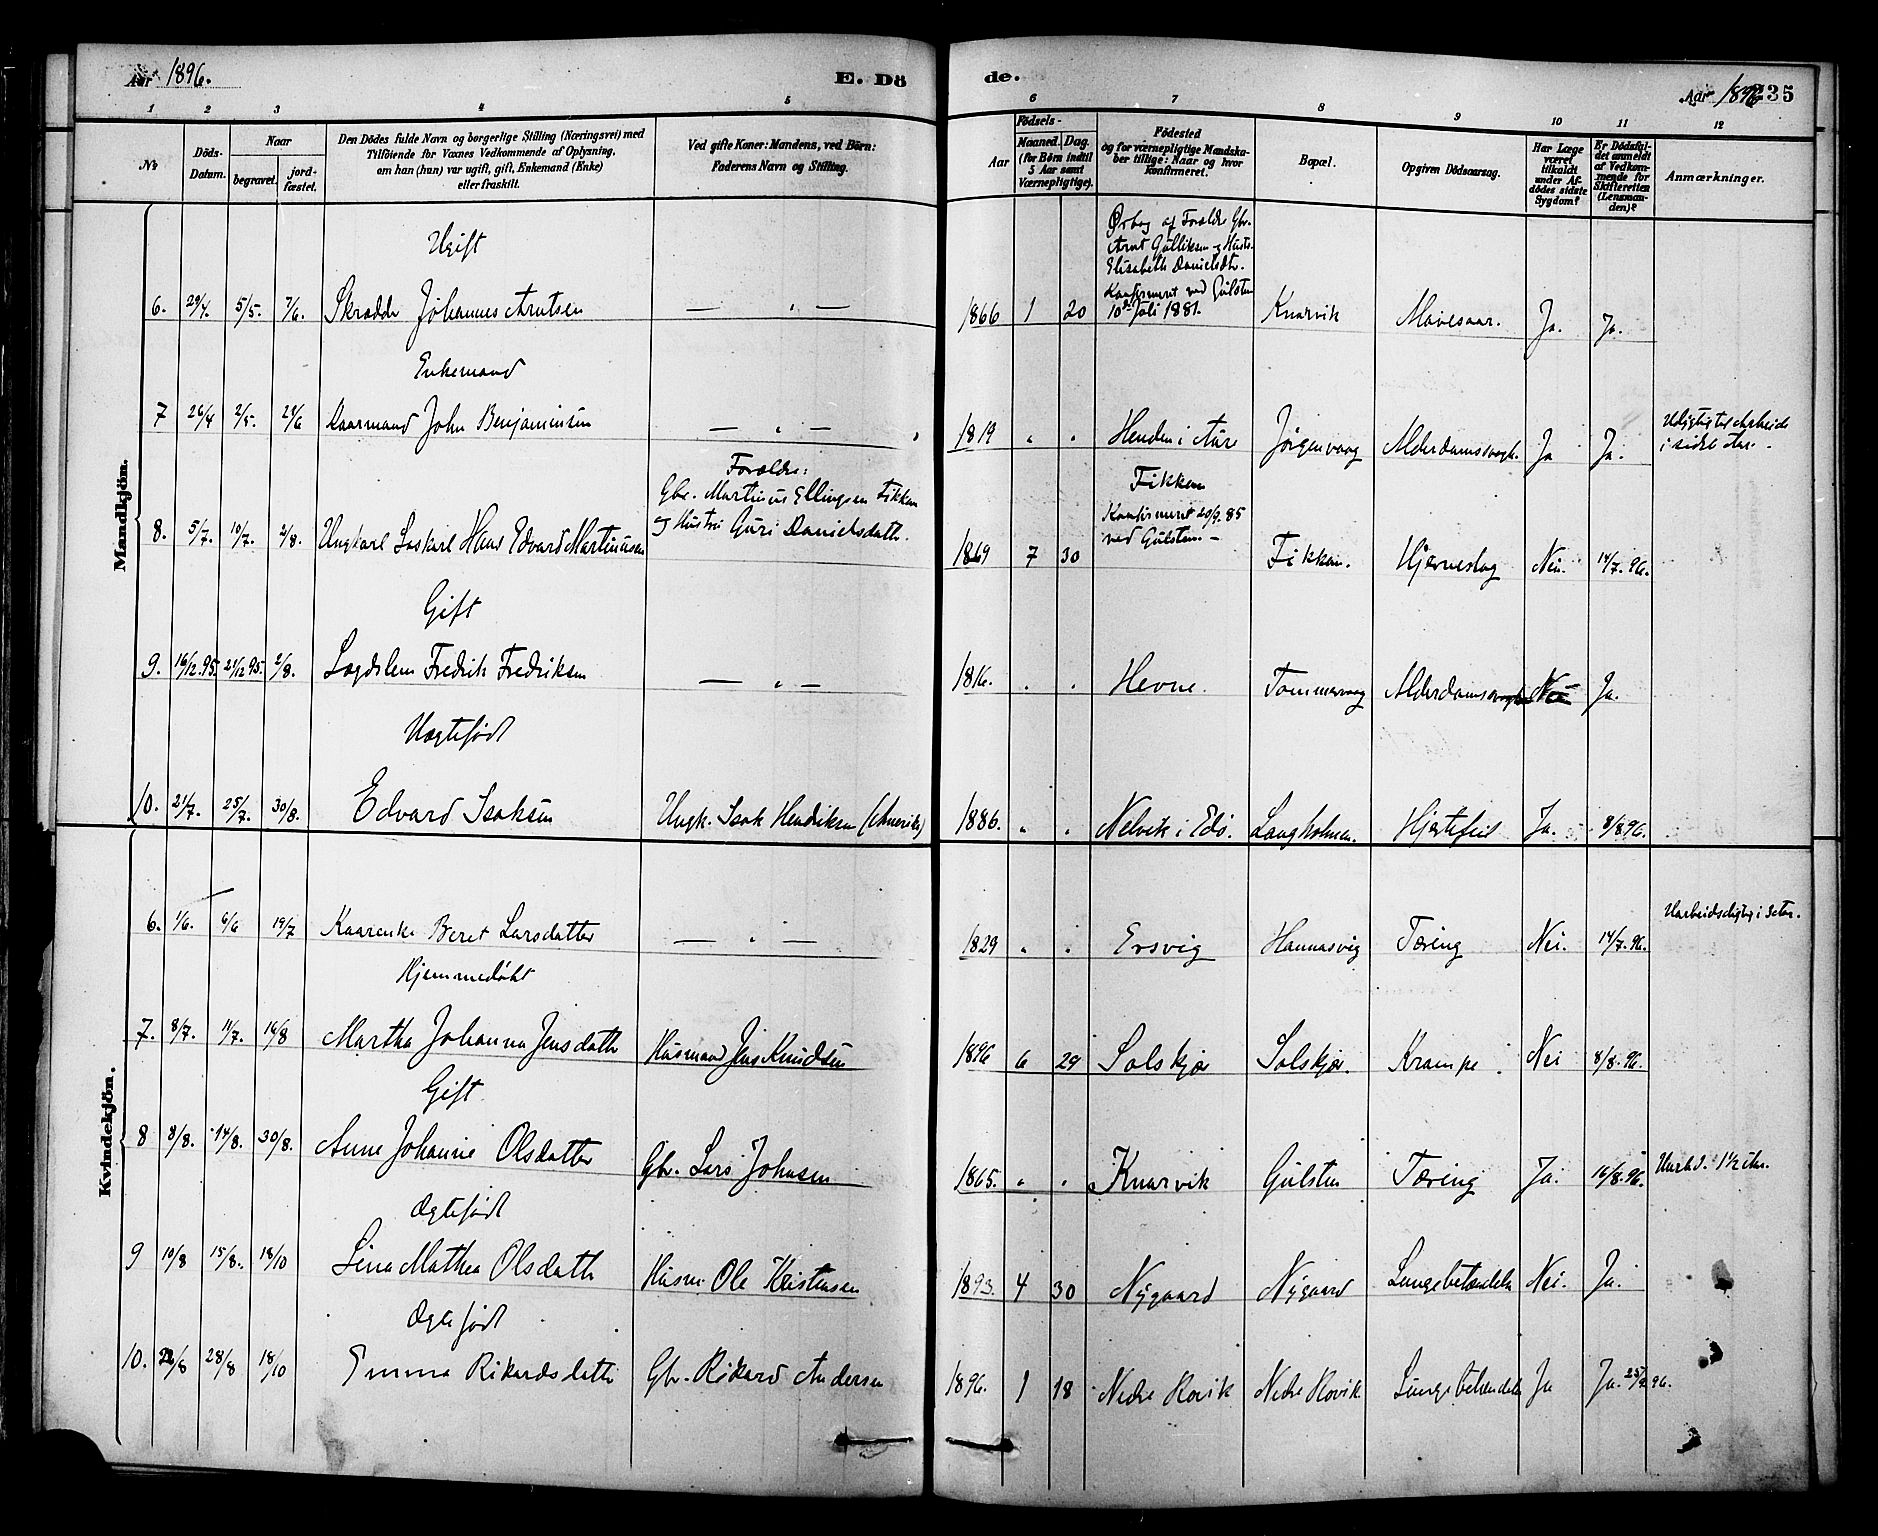 Aar 1896.
E. Dö
de.
Aar 1896
235
1 2 3 4 5 6 7 8 9 10 11 12
No
Döds-Datum.
Naar
begravet.
jord-fæstet.
Den Dödes fulde Navn og borgerlige Stilling (Næringsvei) med
Tilföiende for Voxnes Vedkommende af Oplysning,
om han (hun) var ugift, gift, Enkemand (Enke)
eller fraskilt.
Ved gifte Koner: Mandens, ved Börn:
Faderens Navn og Stilling.
Födsels-
Aar
Maaned. Dag.
(for Börn indtil
5 Aar samt
Værnepligtige).
Födested
og for værnepligtige Mandska-
ber tillige: Naar og hvor
konfirmeret.
Bopæl.
Opgiven Dödsaarsag.
Har Læge
været
tilkaldt
under Af-
dödes sidste
Sygdom?
Er Dödsfal-
det anmeldt
af Vedkom-
mende for
Skifteretten
(Lensman-
den)?
Anmærkninger.
Mandkjön.
Ugift
6. 29/4. 5/5. 7/6. Skrædder Johannes Arntsen — " —
1866 1 20
Ørbog af Forældre Gbr.
Arnt Gulliksen og Hustr.
Elisabeth Danielsdtr.
Konfirmeret ved Gulsten
10de Juli 1881.
Knarvik Mavesaar. Ja. Ja.
Enkemand
7 26/4 2/5. 29/6 Kaarmand John Benjaminsen — " —
1819 " " Henden i Aure Jörgenvaag Alderdomssvagh. Ja Ja.
i sidste Aar.
8. 5/7. 10/7. 2/8. Ungkarl Loskarl Hans Edvard Martinusen
Forældre:
Gbr. Martinus Ellingsen Fikkan
og Hustru Guri Danielsdatter.
1869 7 30
Fikkan
Konfirmeret 20/9. 85
ved Gulsten. –
Fikkan. Hjerneslag Nei. 14/7. 96.
Gift
9. 16/12.95. 21/12 95. 2/8. Lægdslem Fredrik Fredriksen — " —
1816. " " Hevne. Tømmervaag Alderdomssvagh. Nei Ja.
Uægtefødt
10. 21/7. 25/7. 30/8. Edvard Isaksen Ungk. Isak Hendriksen (Amerika)
1886. " " Nelvik i Edö. Langholmen. Hjertefeil Ja. 8/8 96.
Kvindekjön.
6. 1/6. 6/6 19/7 Kaarenke Beret Larsdatter — " —
1829 " " Ersvig Hannasvig Tæring Nei. 14/7. 96.
Uarbeidsdygtig i 3 Aar.
Hjemmedøbt
7. 8/7. 11/7. 16/8 Martha Johanna Jensdatter Husmand Jens Knudsen
1896 6 29 Solskjør Solskjør. Krampe Nei 8/8. 96.
Gift
8 8/8. 14/8. 30/8. Anne Johannie Olsdatter Gbr. Lars Johnsen
1865. " " Knarvik Gulsten Tæring Ja. 16/8. 96. Uarbd. 1½ Aar.
Ægtefødt
9 10/8 15/8. 18/10 Lina Mathea Olsdatter Husm. Ole Kristensen
1893. 4 30 Nygaard Nygaard Lungebetændelse Nei. Ja.
Ægtefødt
10. 22/8 28/8 18/10 Emma Rikardsdatter Gbr. Rikard Andersen
1896. 1 18 Nedre Rovik Nedre Rovik Lungebetændelse Ja Ja. 25/9 96.